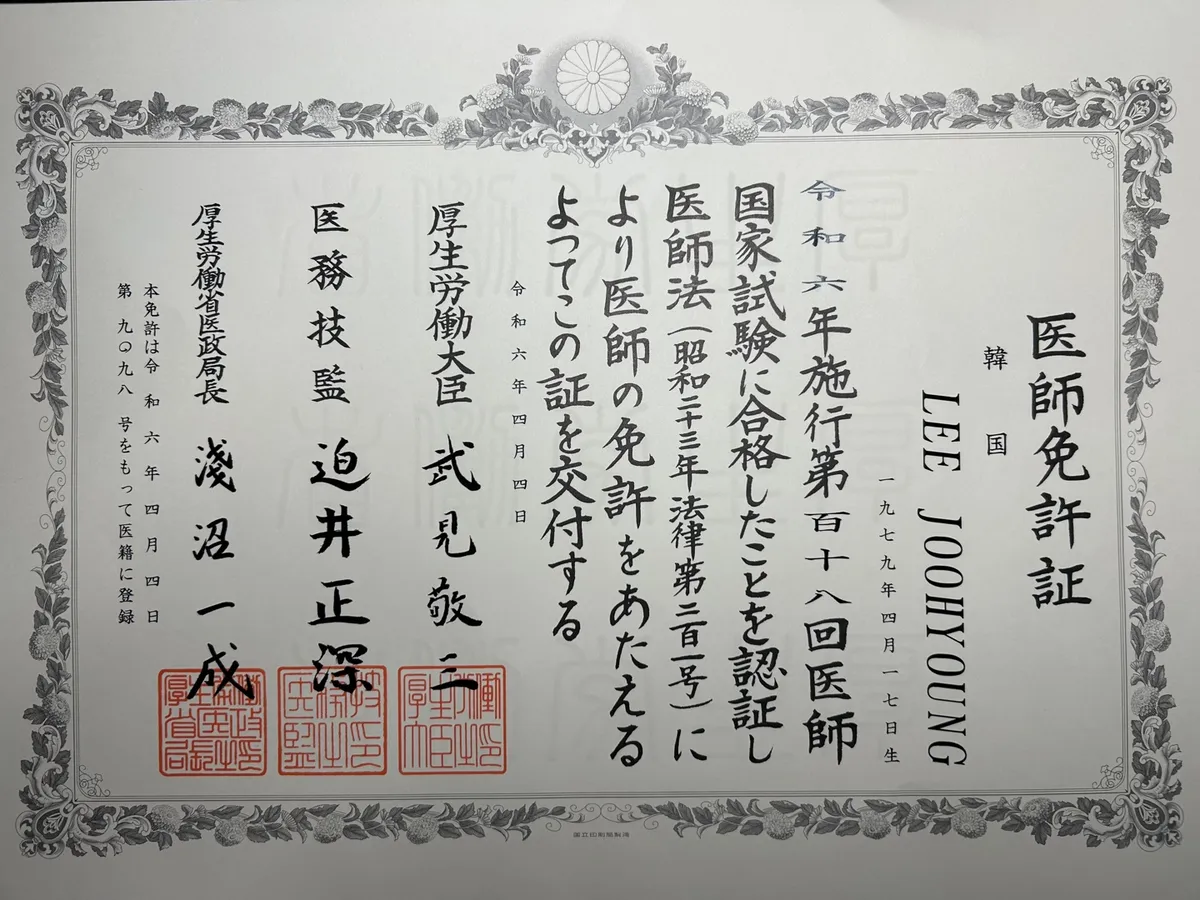 医師免許証
韓国
LEE JOOHYOUNG
一九七九年四月一七日生
令和六年施行第百十八回医師
国家試験に合格したことを認証し
医師法（昭和二十三年法律第二百一号）に
より医師の免許をあたえる
よつてこの証を交付する
令和六年四月四日
厚生労働大臣 武見敬三
医務技監 迫井正深
厚生労働省医政局長 淺沼一成
本免許は令和六年四月四日
第九〇九八号をもって医籍に登録
国立印刷局製造